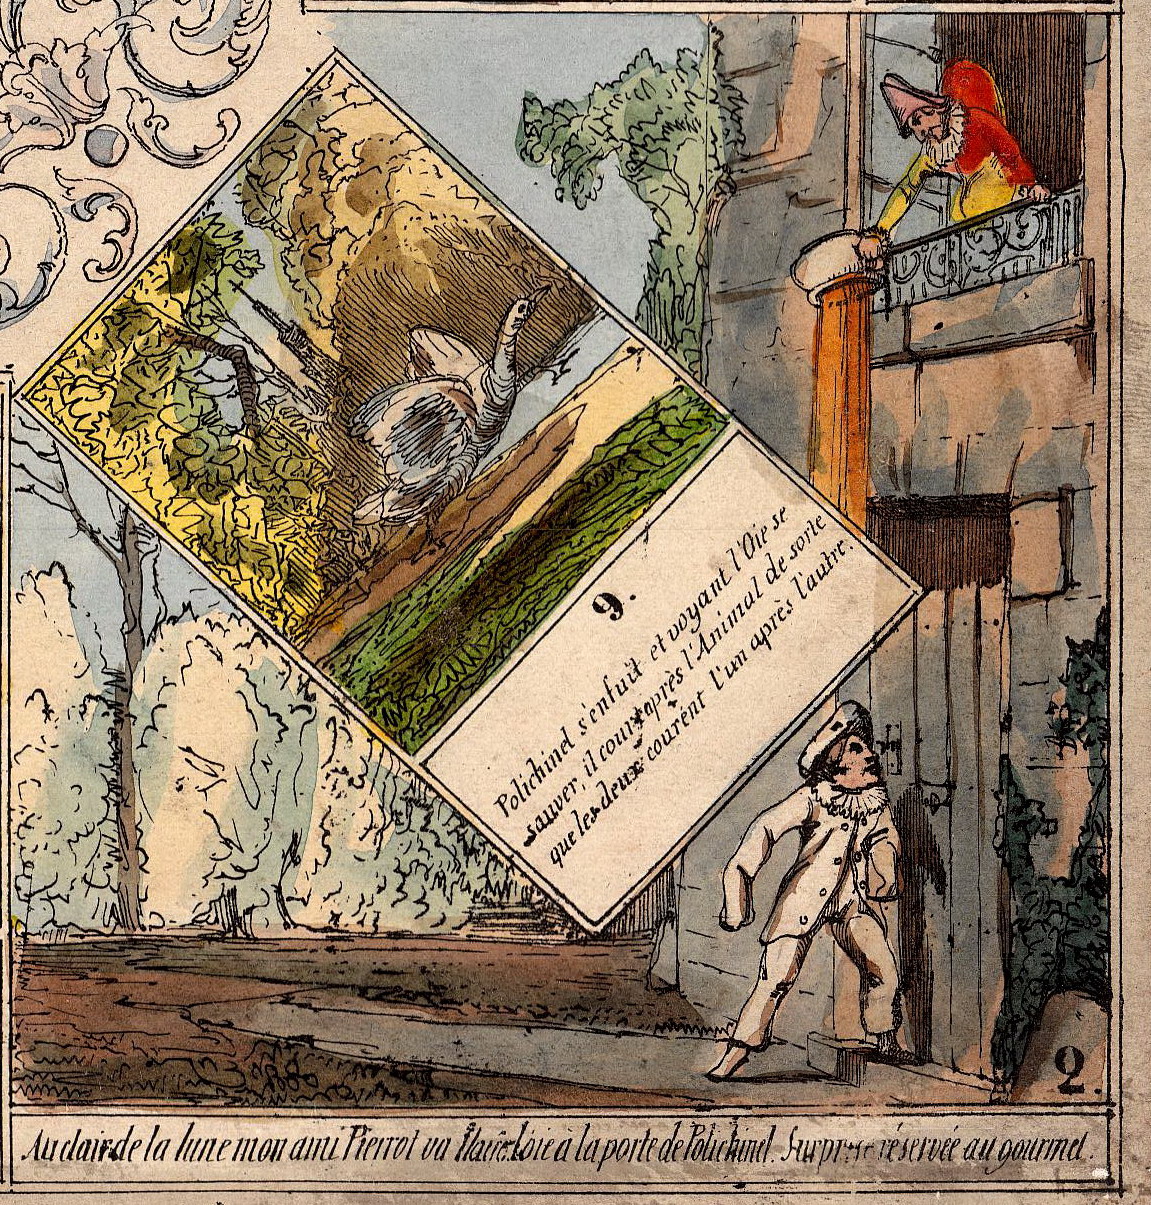 9.
Polichinel s'enfuit et voyant l'Oie se
sauver, il court après l'Animal de sorte
que les deux courent l'un après l'autre.
2.
Au clair de la lune mon ami Pierrot va l'Oie à la porte de Polichinel. Surprise réservée au gourmet.